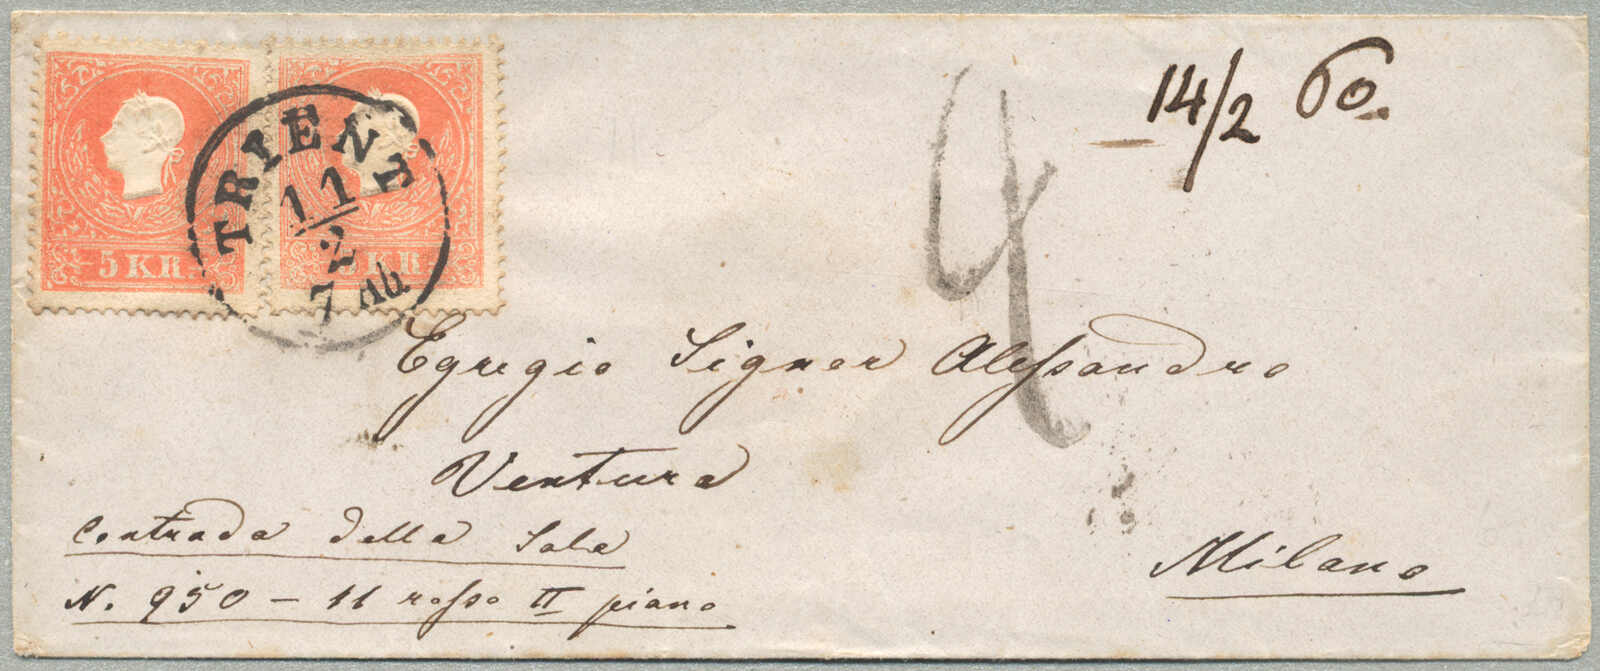 5 KR.
5 KR.
TRIENT
11
2
7 Ab
4
14/2 60.
Egregio Signor Alessandro
Ventura
Contrada della Sala
N. 950 - 11 rosso II piano
Milano